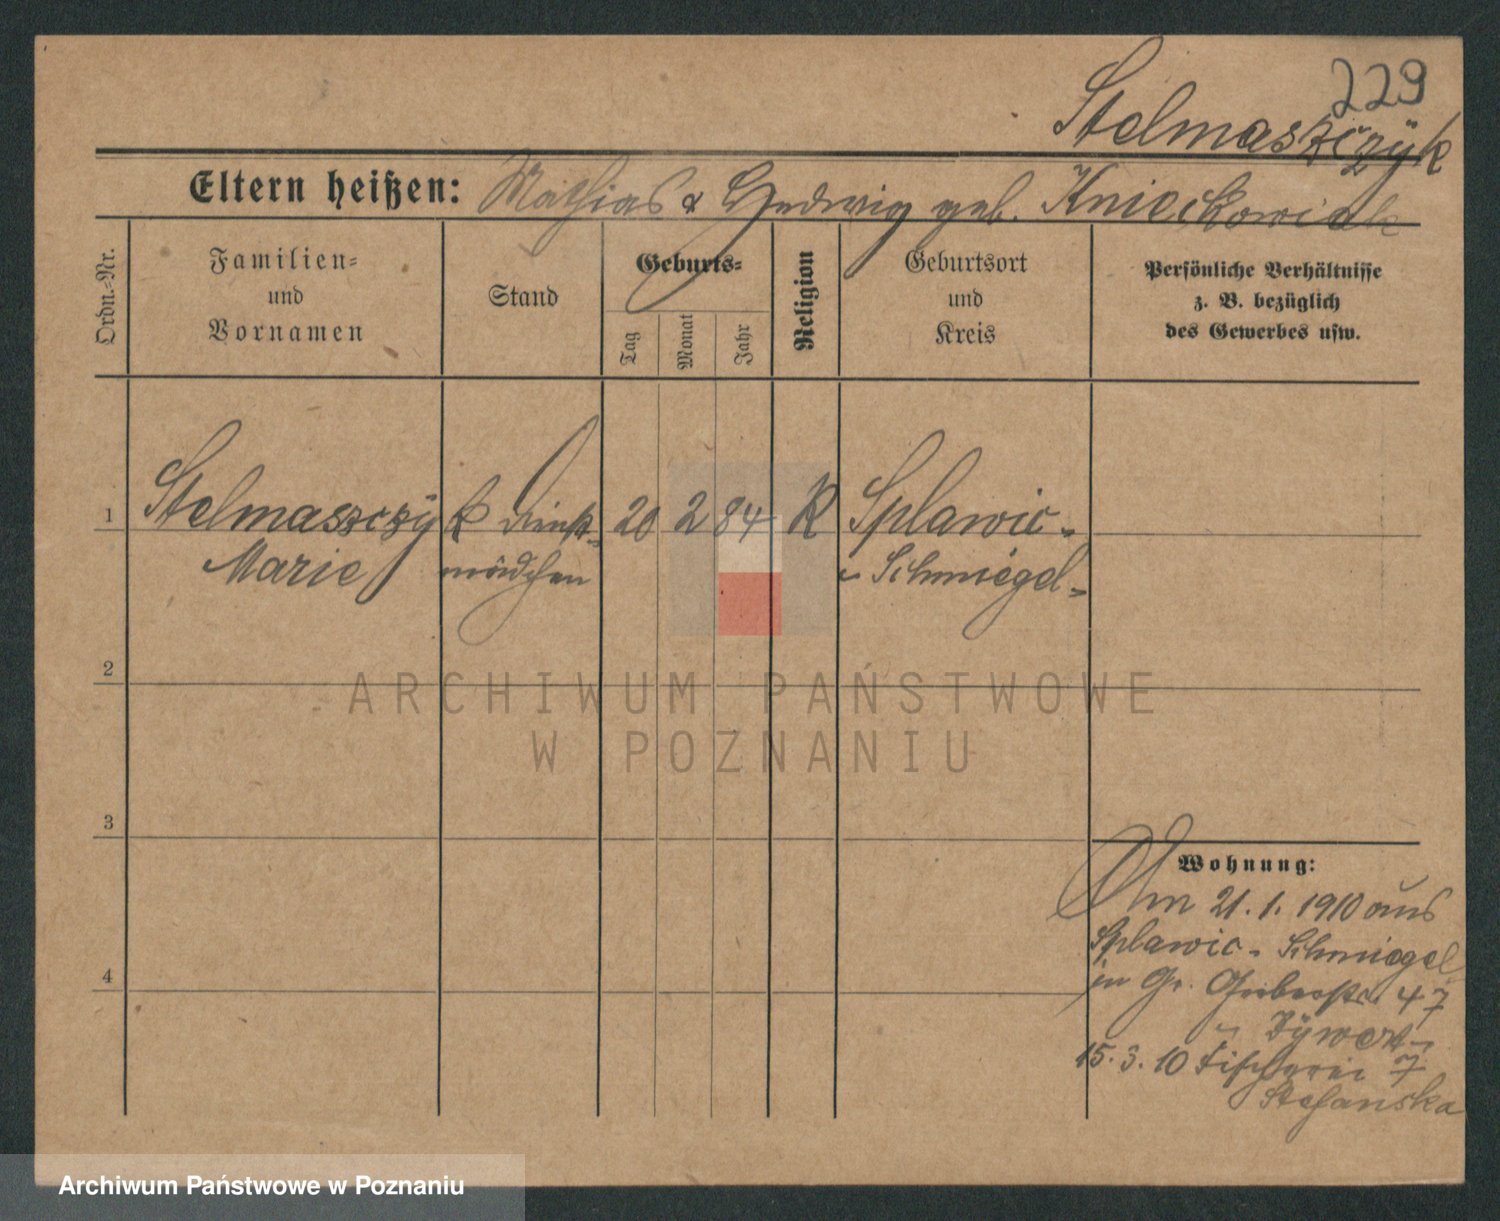 229
Stelmaszczyk
Eltern heißen: Mathias & Hedwig geb.
Ordn.=Nr.
Familien=
und
Vornamen
Stand
Geburts=
Tag
Monat
Jahr
Religion
Geburtsort
und
Kreis
Persönliche Verhältnisse
z. B. bezüglich
des Gewerbes usw.
1 Stelmaszczyk Dienst- 20 2 84 K Splawie-
Marie mädchen Schmiegel-
2
ARCHIWUM PAŃSTWOWE
W POZNANIU
3
Wohnung:
Am 21.1.1910 aus
Splawie - Schmiegel
in Gr. Gerberstr. 47
4
15.3.10 Fischerei 7
Stefanska
Archiwum Państwowe w Poznaniu